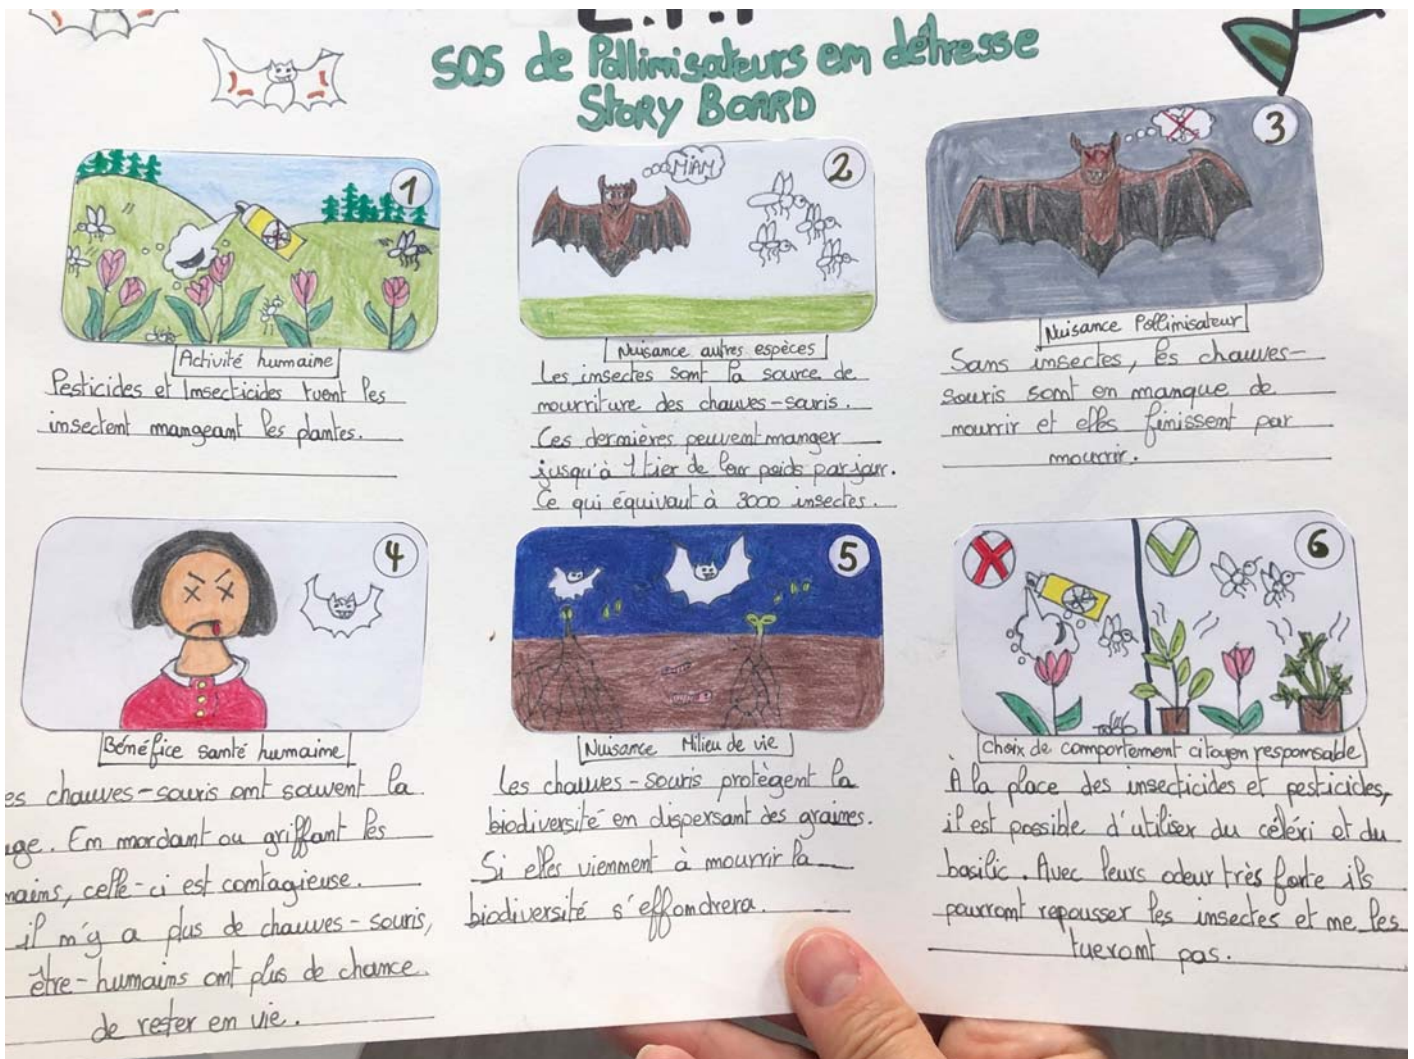 E.P.I
SOS de Pollinisateurs en détresse
Story BOARD
1
Activité humaine
Pesticides et Insecticides tuent les
insectent mangeant les plantes.
MIAM
2
Nuisance autres espèces
Les insectes sont la source de
nourriture des chauves-souris.
Ces dernières peuvent manger
jusqu'à 1 tier de leur poids par jour.
Ce qui équivaut à 3000 insectes.
3
Nuisance Pollinisateur
Sans insectes, les chauves-
souris sont en manque de
nourrir et elles finissent par
mourrir.
4
Bénéfice santé humaine
es chauves-souris ont souvent la
age. En mordant ou griffant les
mains, celle-ci est contagieuse.
il n'y a plus de chauves-souris,
être-humains ont plus de chance
de rester en vie.
5
Nuisance Milieu de vie
Les chauves-souris protègent la
biodiversité en dispersant des graines.
Si elles viennent à mourrir la
biodiversité s'effondrera.
6
Choix de comportement citoyen responsable
À la place des insecticides et pesticides,
il est possible d'utiliser du céléri et du
basilic. Avec leurs odeur très forte ils
pourront repousser les insectes et ne les
tueront pas.